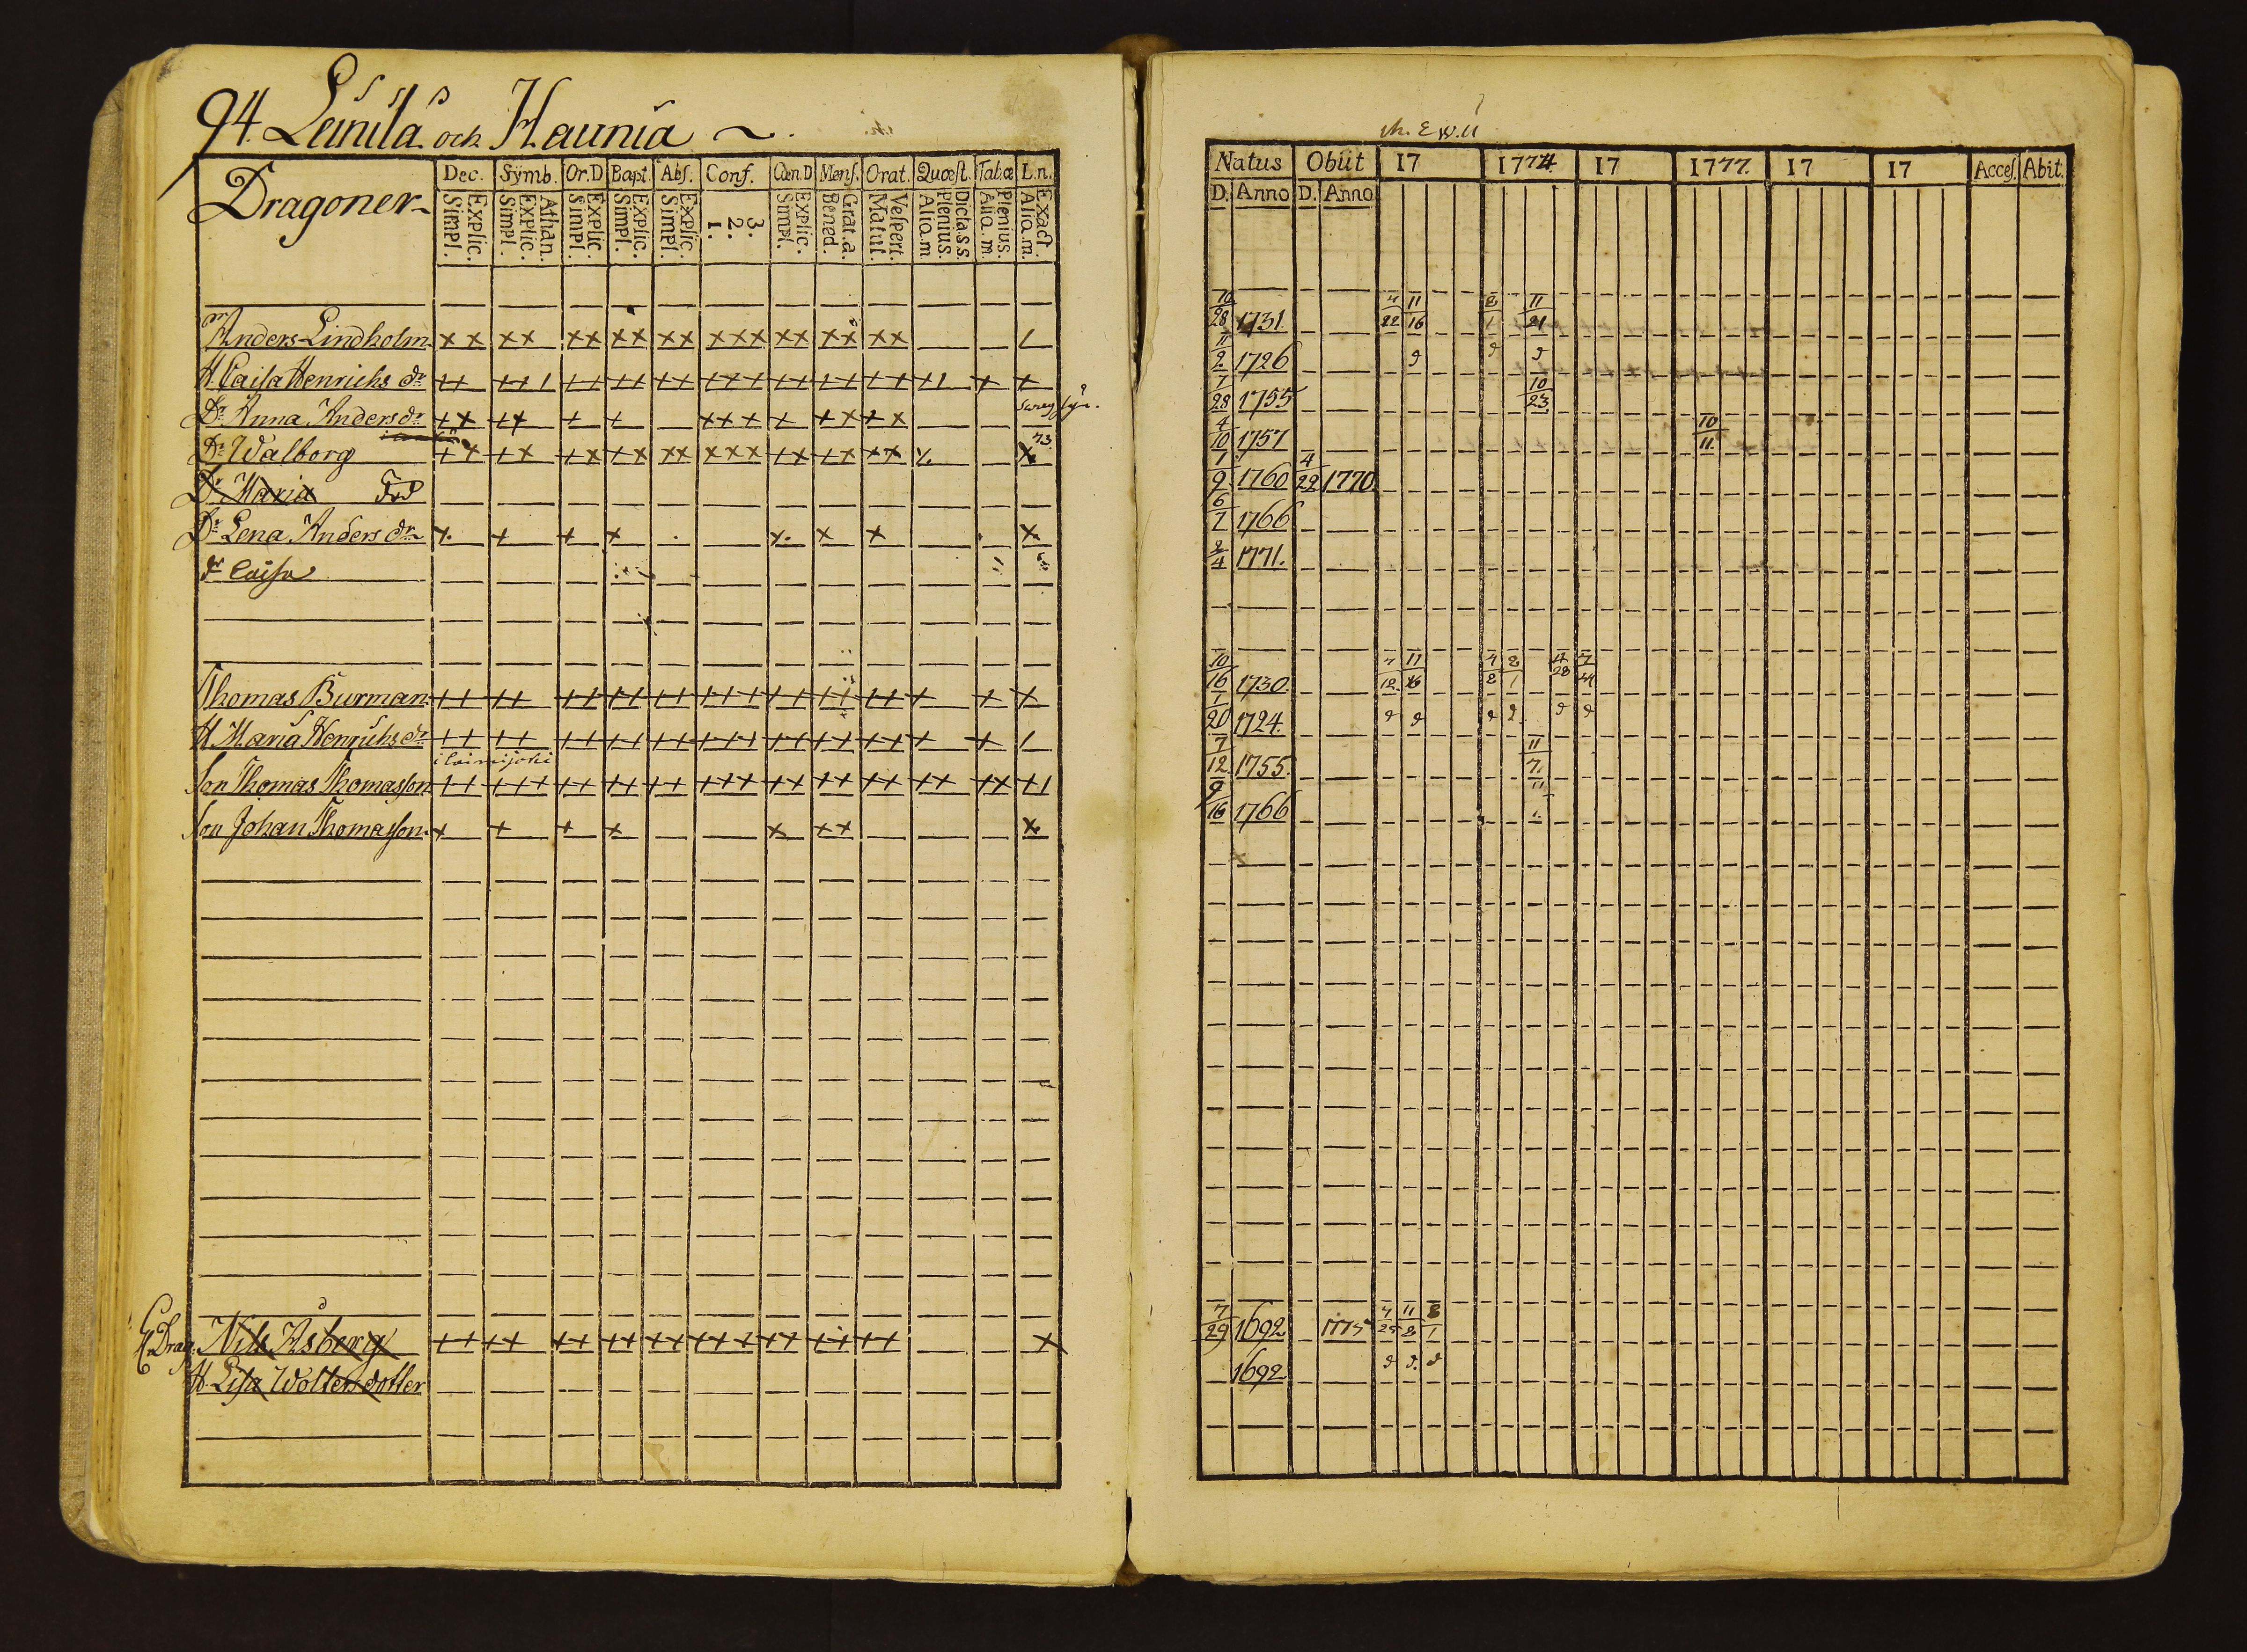 94. Leinilä och Haunia
Dragoner
Dec. Sÿmb. Or.D Bapt. Abs. Conf. Cœn.D Mens. Orat. Quæst. Tabæ L.n.
Explic. Simpl. Athan. Explic. Simpl. Explic. Simpl. Explic. Simpl. Explic. Simpl. 3. 2. 1. Explic. Simpl. Grat.a. Bened. Vespert. Matut. Dicta.s.s. Plenius. Aliq.m Plenius. Aliq.m. Exact. Aliq.m.
Anders Lindholm
H. Caisa Henrichs dr
Dr Anna Anders dr
Dr Walborg 73
Dr Maria
Dr Lena Anders dr
dr Caisa
Thomas Burman
H. Maria Henrichs dr
Son Thomas Thomasson
Son Johan Thomasson
Drag. Nils Åsberg
H. Lisa Wolters dotter
Natus Obiit 17 1774. 17 1777. 17 17 Acces. Abit.
D. Anno D. Anno
10/28 1731. 4/22 11/16 8/1 11/21
11/2 1726
7/28 1755 10/23
4/10 1757 10/11
1/9 1760 4/22 1770
6/7 1766
2/4 1771.
10/16 1730 4/12 11/16 4/8 8/1 4/28
1/20 1724.
7/12 1755. 11/7
9/16 1766
7/29 1692 1775 4/25 11/8 8/1
1692